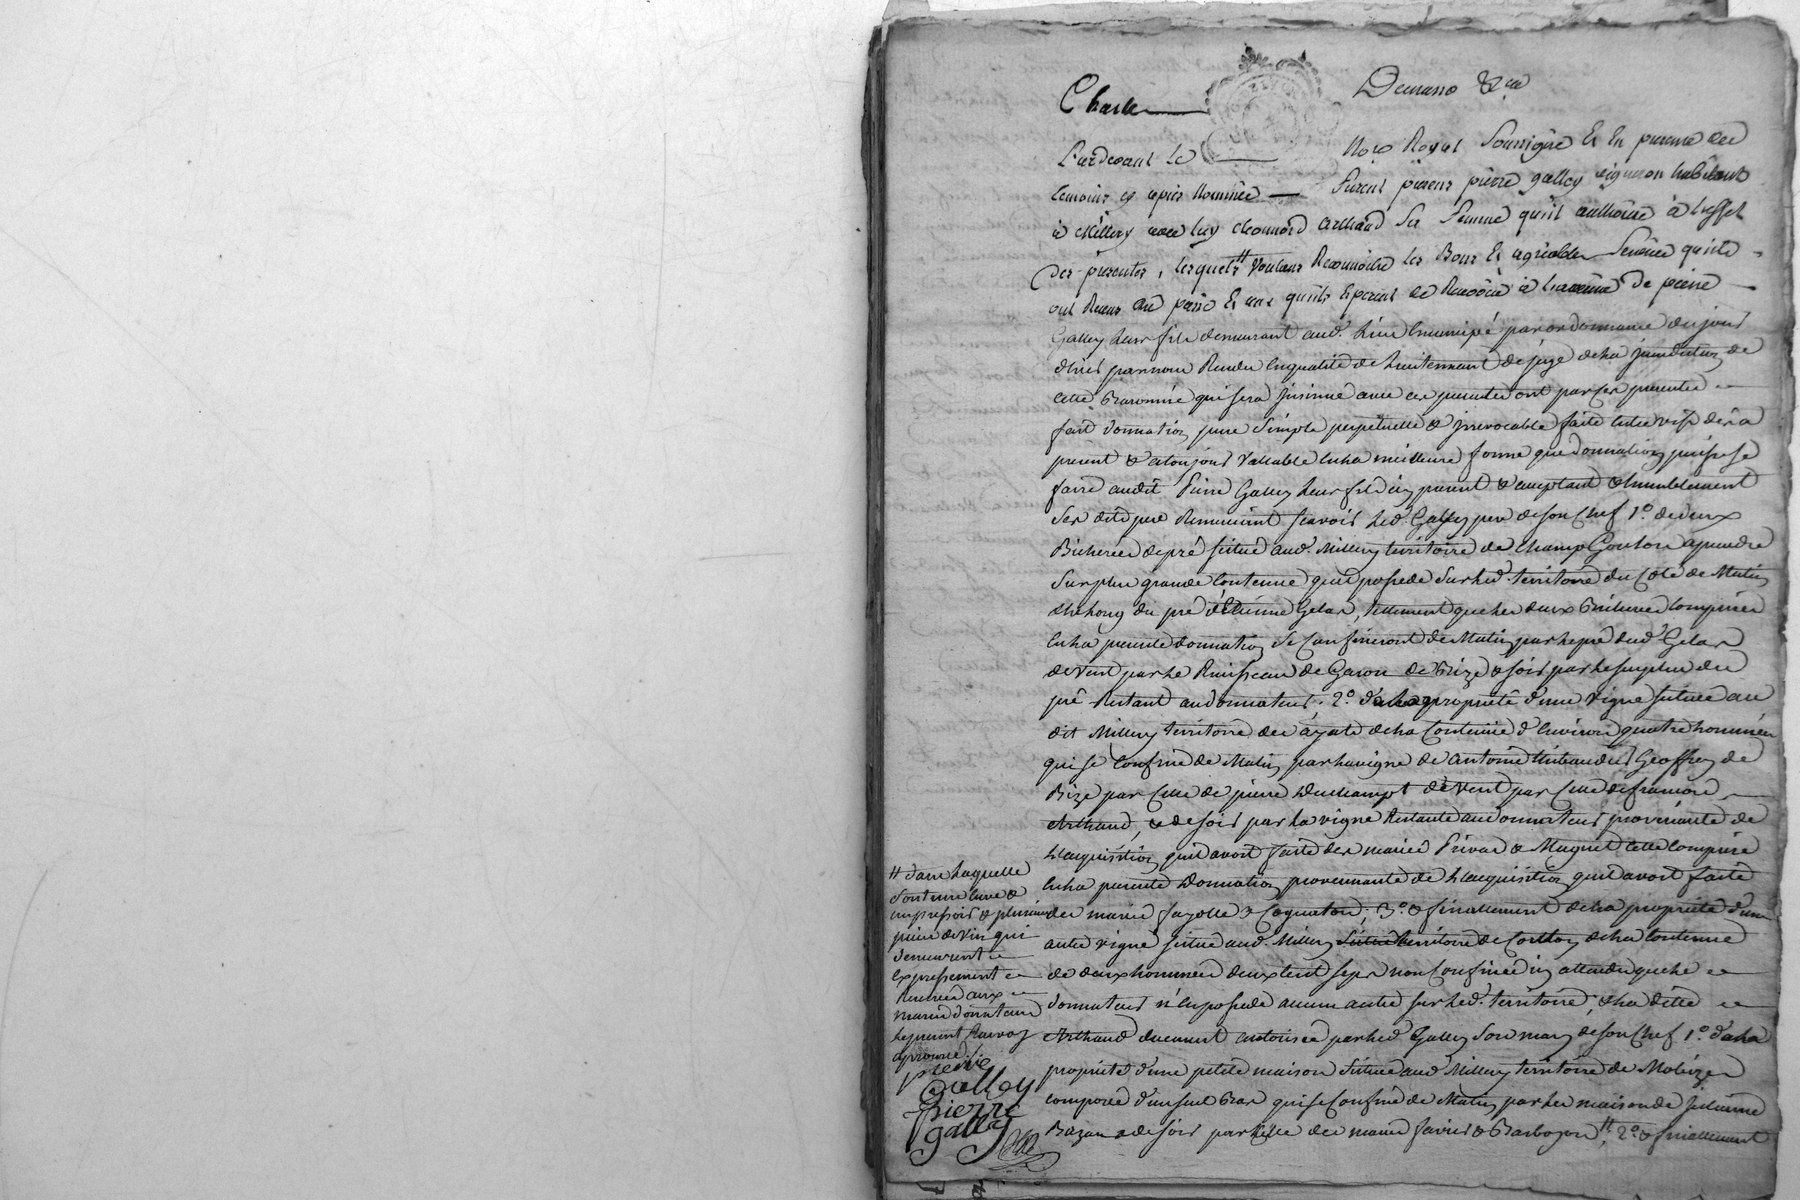 Charle Demasso &ca
Pardevant le No.re Royal Soussigné Et En presence des
temoins cy apres Nommés furent presens pierre galley vigneron habitant
à Millery avec luy Leonnord Arthaud Sa femme qu'il authorise à L'effet
Des presentes, lesquels voulans Reconnoitre les Bons Et agreables Services qu'ils
ont Reçus du passé Et ceux qu'ils Esperent de Recevoir à L'avenir De pierre
Galley leur fils demeurant aud. lieu Emancipé par ordonnance du jour
d'hier par nous Rendu En qualité de Lieutennant de juge de la jurisdiction de
cette Baronnie qui sera Insinué avec ces presentes ont par Ces presentes
fait donnation pure Simple perpetuelle & jrrevocable faite entre vifs des a
present & a toujours Vallable En la meilleure forme que donnation puisse se
faire audit Pierre Galley leur fils icy present & acceptant & humblement
Ses dits pere Remerciant scavoir led. Galley pere de son Chef 1.o de deux
Bicherées de pré situé aud. Millery territoire de Champ Gouton a prendre
Sur plus grande Contenue qu'il possede Sur led. territoire du Coté de Matin
le long du pré d'Etienne Gelas, tellement que les deux Bicherées Comprises
En la presente donnation Se Confineront de Matin par le pré dud. Gelas
de Vent par le Ruisseau de Garon de Bize & soir par le surplus du
pré Restant au donnateur; 2.o de la proprieté d'une Vigne située au
dit Millery territoire des ayats de la Contenue d'Environ quatre hommées
qui se Confine de Matin par la vigne de antoine Geoffrey de
Bize par Celle de pierre Duchampt de Vent par Celle de francois
Arthaud, & de soir par la vigne Restante au donnateur provenante de
l'acquisition qu'il avoit faite des mariés Privas & Magnet Cette Comprise
En la presente Donnation provennante de l'acquisition qu'il avoit faite
des mariés fayolle & Coquaton; 3.o & finallement de la proprieté d'une
autre vigne située aud. Millery territoire de de la Contenue
de deux hommées deux tiers non Confinée icy attendu que le
donnateur n'En possede aucune autre sur led. territoire; & la ditte
Arthaud duement autorisée par led. Galley Son mary de son Chef 1.o de la
proprieté d'une petite maison Située aud. Millery territoire de
composée d'un seul Bas qui se Confine de Matin par les maison de
Bazan & de soir par Celle des mariés & Barbozon #; 2.o & finallement
# dans laquelle
sont une Cuve &
un pressoir & plusieurs
piece de Vin qui
demeurent
expressement
Reservés aux
mariés donnateurs
le present Renvoy
aprouvé
pierre
Galley
pierre
galley